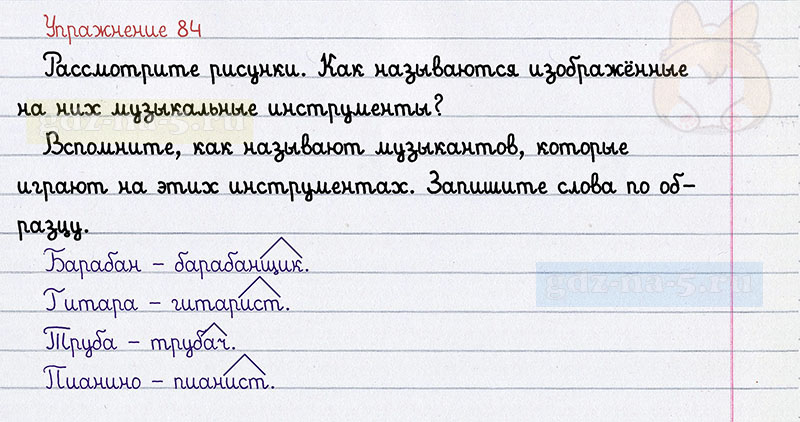 Упражнение 84
Рассмотрите рисунки. Как называются изображённые
на них музыкальные инструменты?
gdz-na-5.ru
Вспомните, как называют музыкантов, которые
играют на этих инструментах. Запишите слова по об-
разцу.
Барабан – барабанщик.
Гитара – гитарист.
gdz-na-5.ru
Труба – трубач.
Пианино – пианист.